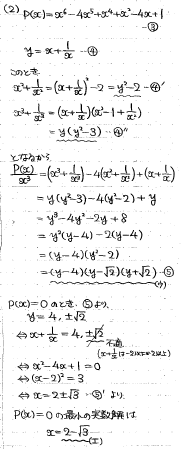 (2) P(x) = x⁶ - 4x⁵ + x⁴ + x² - 4x + 1
③
y = x + 1/x …④
このとき
x² + 1/x² = (x + 1/x)² - 2 = y² - 2 …④'
x³ + 1/x³ = (x + 1/x)(x² - 1 + 1/x²)
= y(y² - 3) …④''
となるから
P(x)/x³ = (x³ + 1/x³) - 4(x² + 1/x²) + (x + 1/x)
= y(y² - 3) - 4(y² - 2) + y
= y³ - 4y² - 2y + 8
= y²(y - 4) - 2(y - 4)
= (y - 4)(y² - 2)
= (y - 4)(y - √2)(y + √2) …⑤
P(x) = 0 のとき、⑤より
y = 4, ±√2
⇔ x + 1/x = 4, ±√2
不適
⇔ x² - 4x + 1 = 0
⇔ (x - 2)² = 3
⇔ x = 2 ± √3 …⑤' より
P(x) = 0 の最小の実数解は
x = 2 - √3
(エ)